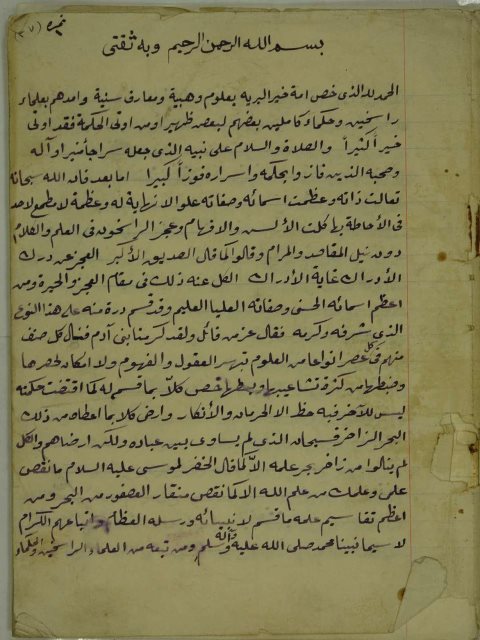 نمره (٣٧)
بسم الله الرحمن الرحيم وبه ثقتى
الحمد لله الذى خص امة خير البريه بعلوم وهبية ومعارف سنية وامدهم بعلماء
راسخين وحكماء كاملين بعضهم لبعض ظهيرا ومن اوتى الحكمة فقد اوتى
خيرا كثيرا والصلاة والسلام على نبيه الذى جعله سراجا منيرا وآله
وصحبه الذين فازوا بحكمه واسراره فوزا كبيرا اما بعد فان الله سبحانه
تعالت ذاته وعظمت اسمائه وصفاته علوا لا نهاية له وعظمة لا مطمع لاحد
فى الأحاطة بها كلت الألسن والافهام وعجز الراسخون فى العلم والكلام
دون نيل المقاصد والمرام وقالوا كما قال الصديق الأكبر العجز عن درك
الأدراك غاية الأدراك الكل عنه ذلك فى مقام العجز والحيرة ومن
اعظم اسمائه الحسنى وصفاته العليا العليم وقد قسم درة منه على هذا النوع
الذى شرفه وكرمه فقال عز من قائل ولقد كرمنا بنى آدم فنال كل صنف
منهم فى كل عصر انواعا من العلوم تبهر العقول والفهوم ولا امكان لحصرها
وضبطها من كثرة تشاعيبها وبسطها خص كلا بما قسم له لما اقتضت حكمته
ليس للآخر فيه حظ الا الحرمان والأنكار وارضى كلا بما اعطاه من ذلك
البحر الزاخر فسبحان الذى لم يساوى بين عباده ولكن ارضاهم والكل
لم ينالوا من زاخر بحر علمه الا كما قال الخضر لموسى عليه السلام ما نقص
علمى وعلمك من علم الله الا كما نقص منقار العصفور من البحر ومن
اعظم تقاسيم علمه ما قسم لانبيائه ورسله العظام واتباعهم الكرام
لا سيما نبينا محمد صلى الله عليه وآله وسلم ومن تبعه من العلماء الراسخين والحكماء